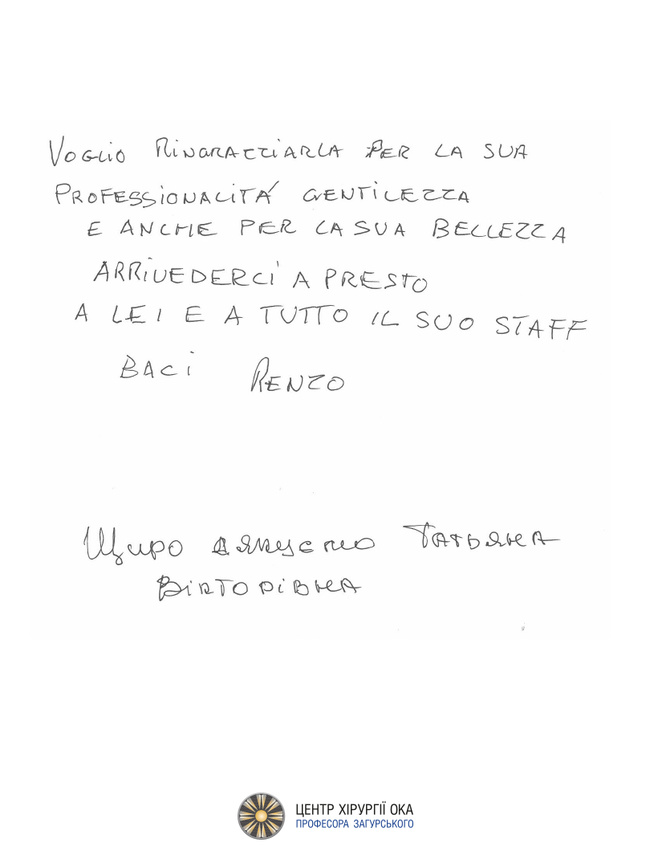 VOGLIO RINGRAZZIARLA PER LA SUA
PROFESSIONALITÁ GENTILEZZA
E ANCHE PER LA SUA BELLEZZA
ARRIVEDERCI A PRESTO
A LEI E A TUTTO IL SUO STAFF
BACI RENZO
Щиро дякуємо Татьяна
Вікторівна
ЦЕНТР ХІРУРГІЇ ОКА
ПРОФЕСОРА ЗАГУРСЬКОГО